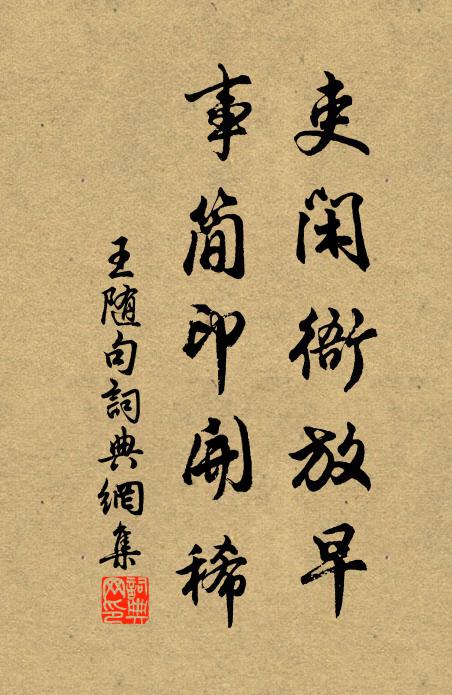 吏闲衙放早
事简印開稀
王随句詞典網集
詞典
网印